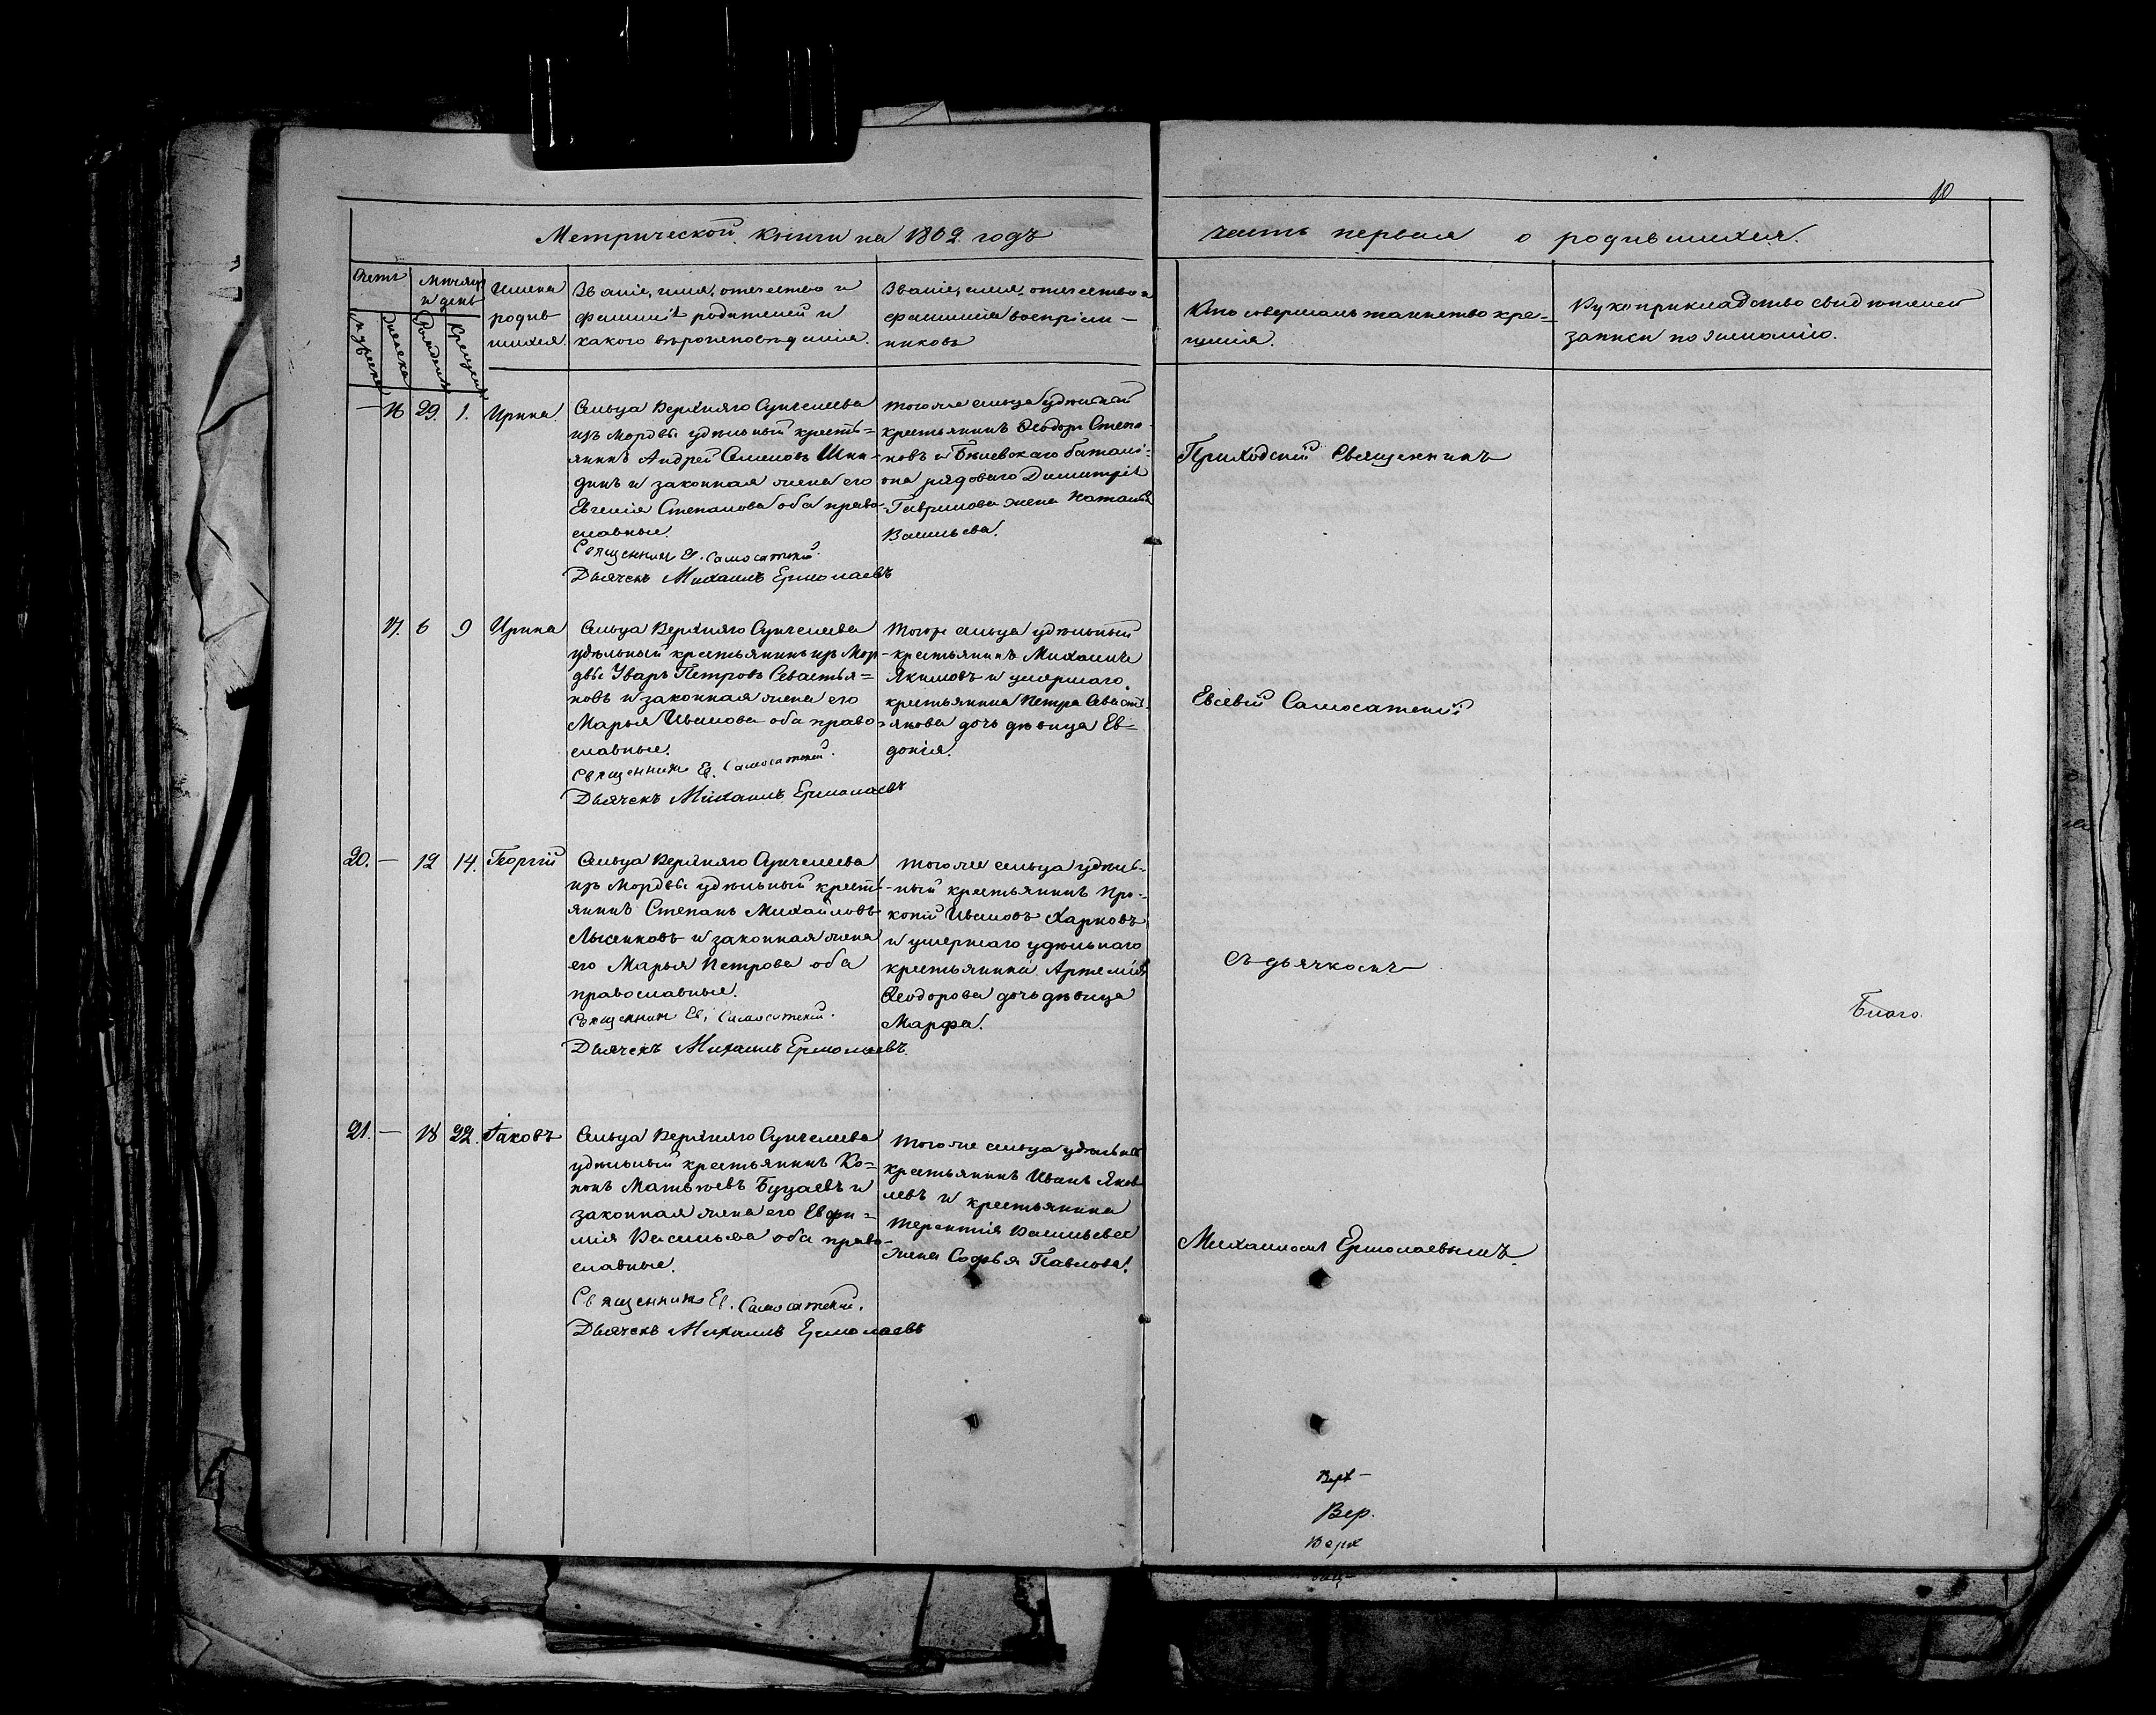 10
Метрической книги на 1862 годъ
часть первая о родившихся.
Счетъ
Мѣсяцъ и день
мужеска
женска
Рожденія
Крещенія
Имена
родив
шихся.
Званіе, имя, отечество и
фамилія родителей и
какого вѣроисповѣданія.
Званіе, имя, отечество и
фамилія воспріем-
никовъ
Кто совершалъ таинство кре=
щенія.
Рукоприкладство свидѣтелей
записи по желанію.
— 16 29. 1. Ирина.
Сельца Верхняго Сунчелеева
изъ Мордвы удѣльный кресть=
янинъ Андрей Семеновъ
и законная жена его
Евгенія Степанова оба право-
славные.
Священник Ев. Самосатскій.
Дьячекъ Михаилъ Ермолаевъ
тогоже сельца удѣльный
крестьянинъ Ѳеодоръ Степа-
новъ и баталі-
она рядоваго Димитрія
Гаврилова жена Наталья
Васильева.
17. 6 9 Ирина
Сельца Верхняго Сунчелеева
удѣльный крестьянинъ изъ Мор-
двы Уваръ Петровъ Севастья=
новъ и законная жена его
Марья Иванова оба право-
славные.
Священникъ Ев. Самосатскій.
Дьячекъ Михаилъ Ермолаевъ
Тогоже сельца удѣльный
крестьянинъ Михаилъ
Якимовъ и умершаго
крестьянина Петра Севасть
янова дочь дѣвица Ев=
докія.
20. — 12 14. Георгій
Сельца Верхняго Сунчелеева
изъ Мордвы удѣльный кресть
янинъ Степанъ Михайловъ
Лысенковъ и законная жена
его Марья Петрова оба
православные.
Священник Ев. Самосатскій.
Дьячекъ Михаилъ Ермолаевъ.
тогоже сельца удѣль-
ный крестьянинъ Про-
копій Ивановъ Харковъ
и умершаго удѣльнаго
крестьянина Артемія
Ѳеодорова дочь дѣвица
Марфа.
21. — 18 22. Іаковъ
Сельца Верхняго Сунчелеева
удѣльный крестьянинъ Ко=
нонъ Матвѣевъ Буцаевъ и
законная жена его Евфи=
мія Васильева оба право-
славные.
Священникъ Ев. Самосатскій.
Дьячекъ Михаилъ Ермолаевъ
тогоже сельца удѣльный
крестьянинъ Иванъ Яков
левъ и крестьянина
Терентія Васильева
жена Софья Павлова.
Приходскій Священникъ
Евсевій Самосатскій
съ дьячкомъ
Михаиломъ Ермолаевымъ.
Благо
Верх-
Вер.
Верх